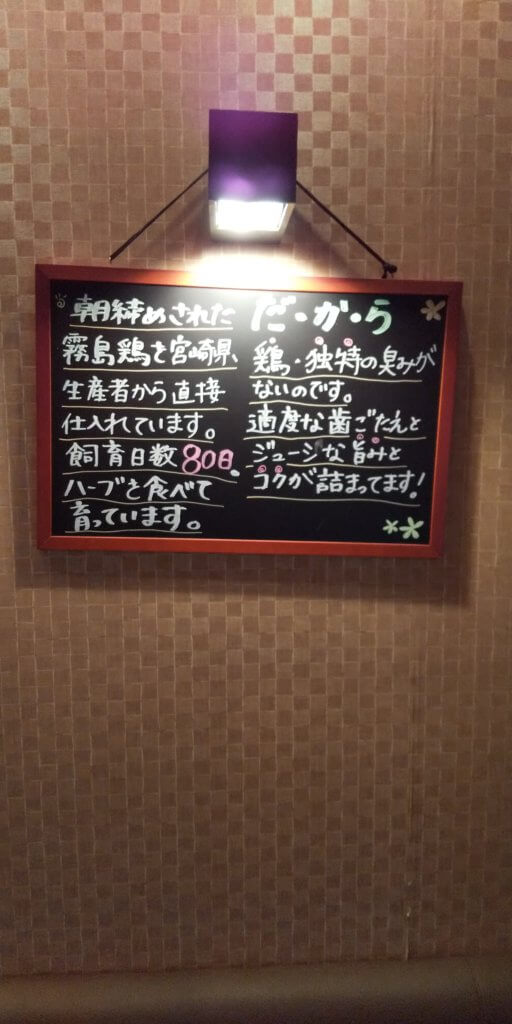 朝締めされた
霧島鶏を宮崎県、
生産者から直接
仕入れています。
飼育日数80日。
ハーブを食べて
育っています。
だ・か・ら
鶏・独特の臭みが
ないのです。
適度な歯ごたえと
ジューシな旨みと
コクが詰まってます!